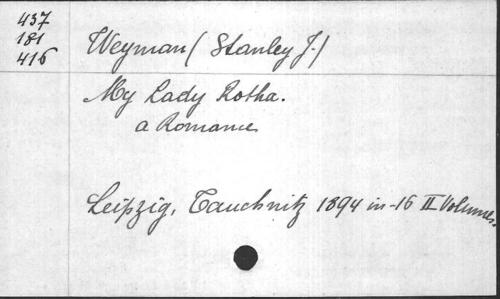 437
181
416
Weyman (Stanley J.)
My Lady Rotha.
a Romance
Leipzig, Tauchnitz 1894 in-16 II Volumes.